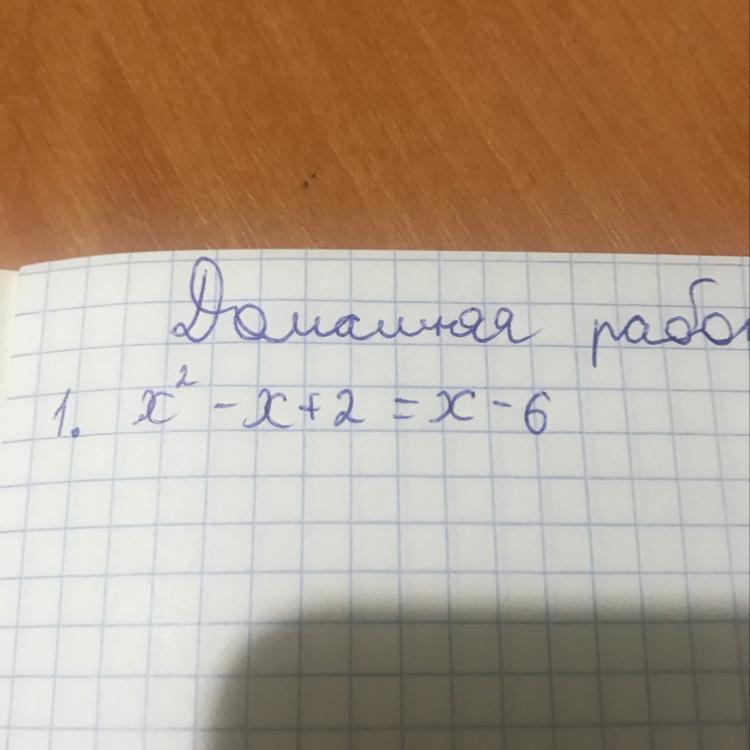 Домашняя рабо
1. x² - x + 2 = x - 6